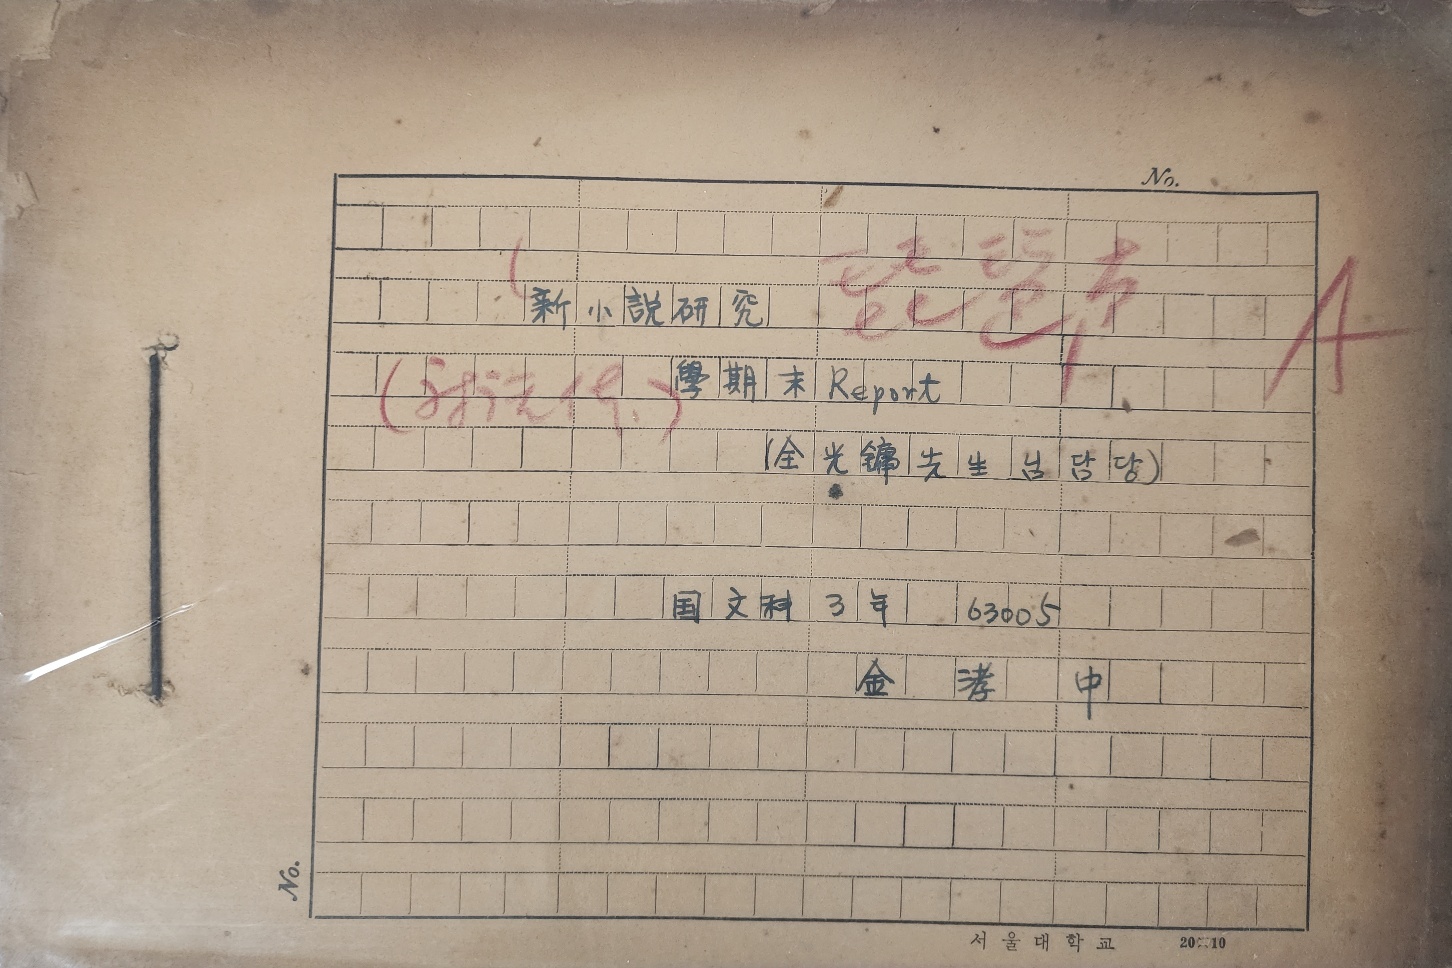 No.
琵琶声 A
新小説研究
(謝氏傳.)
學期末 Report
(全光鏞先生님 담당)
国文科 3年 63005
金涍中
No.
서울대학교 20×10